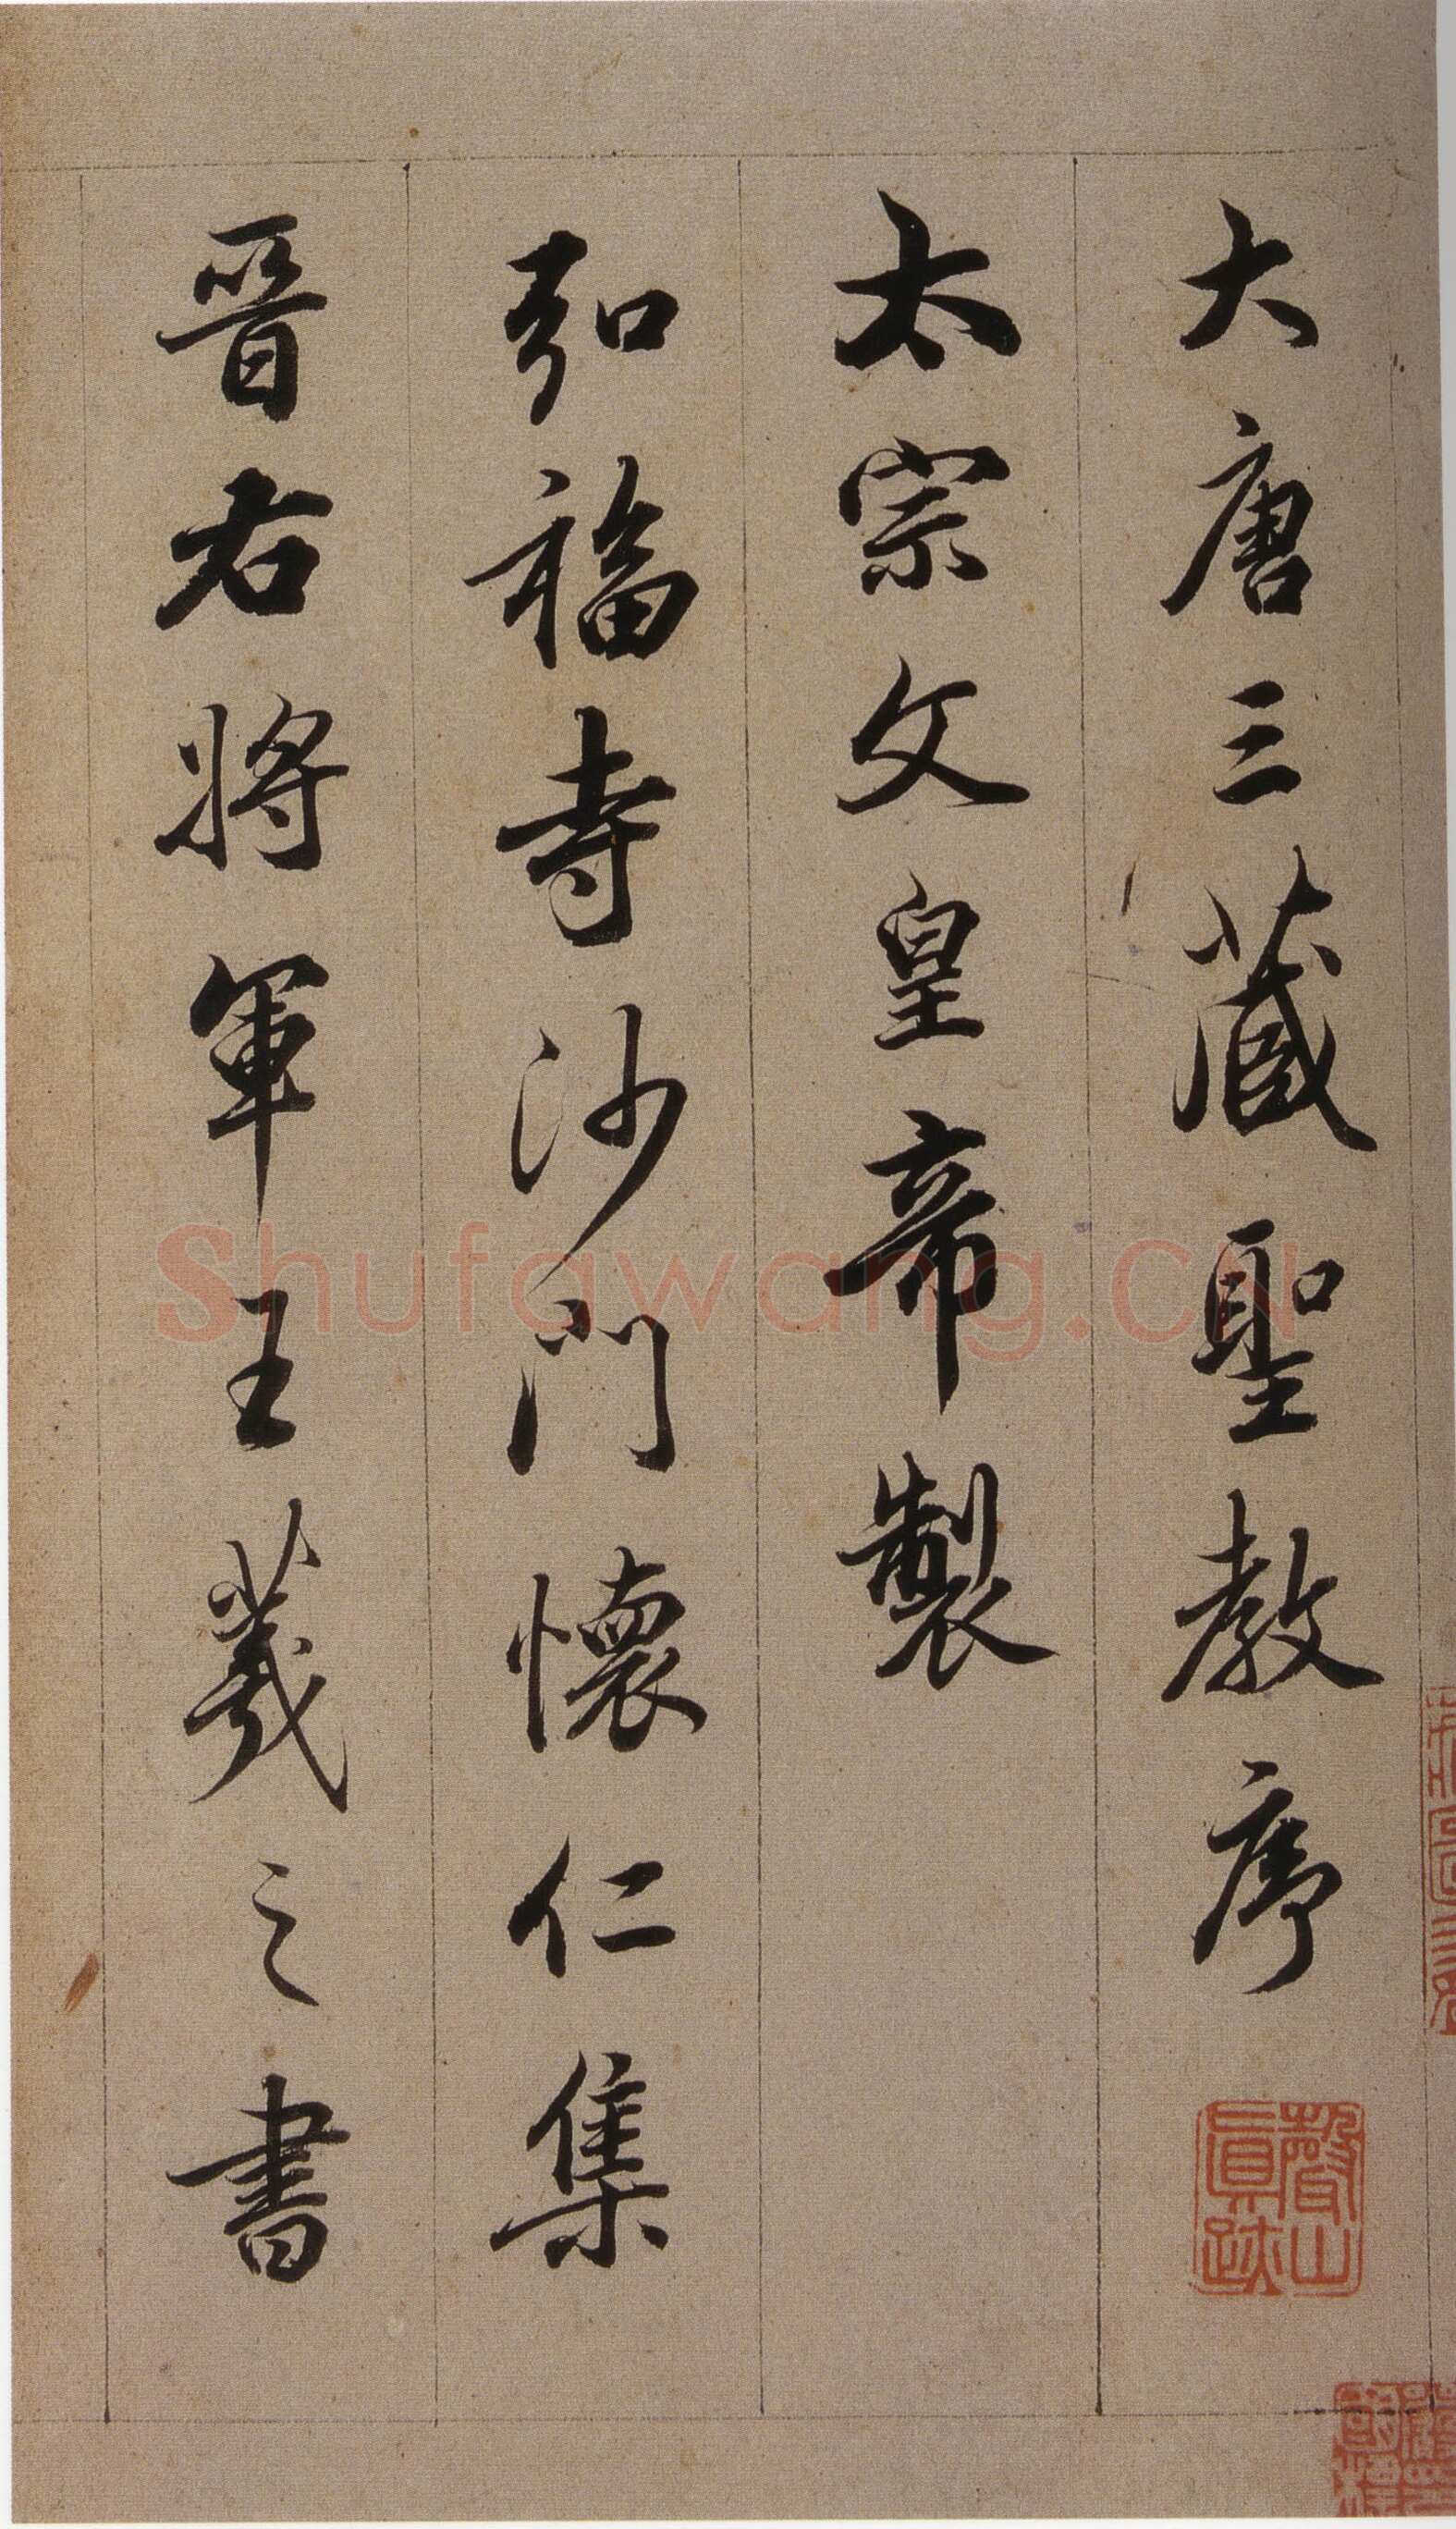 大唐三藏聖教序
太宗文皇帝製
弘福寺沙門懷仁集
晉右將軍王羲之書
Shufawang.CN